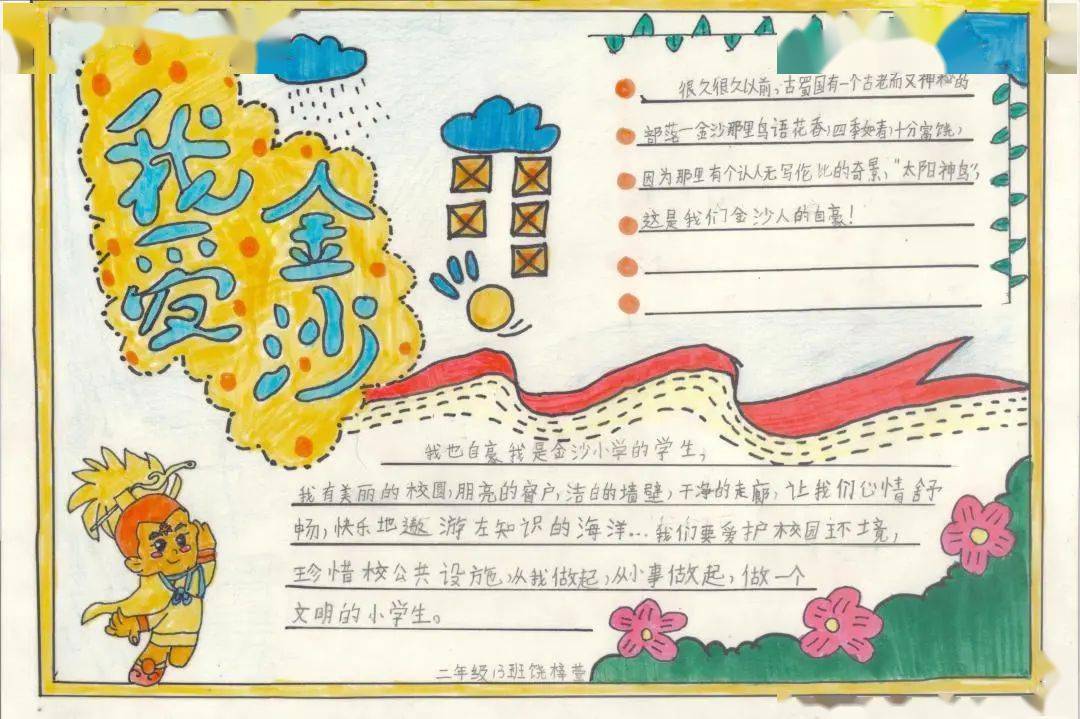 我爱
金沙
很久很久以前,古蜀国有一个古老而又神秘的
部落—金沙那里鸟语花香,四季如春,十分富饶,
因为那里有个让人无写伦比的奇景,“太阳神鸟”,
这是我们金沙人的自豪!
我也自豪我是金沙小学的学生,
我有美丽的校园,明亮的窗户,洁白的墙壁,干净的走廊,让我们心情舒
畅,快乐地遨游在知识的海洋…我们要爱护校园环境,
珍惜校公共设施,从我做起,从小事做起,做一个
文明的小学生。
二年级13班饶梓萱